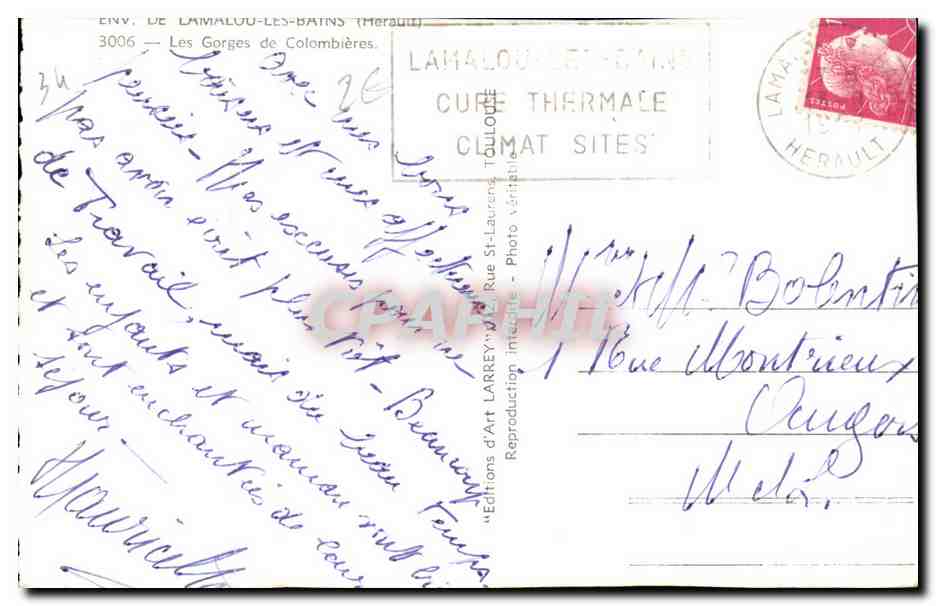 ENV. DE LAMALOU-LES-BAINS (Hérault)
3006 — Les Gorges de Colombières.
34
2€
LAMALOU-LES-BAINS
CURE THERMALE
CLIMAT SITES
LAMA
HERAULT
POSTES
avec mes bons
baisers et mes affectueuses
pensées - Mes excuses pour ne
pas avoir écrit plus tôt - Beaucoup
de Travail, mais du beau Temps.
Les enfants et maman vont bi
et sont enchantés de leur
séjour -
"Editions d'Art LARREY" 12, Rue St-Laurent, TOULOUSE
Reproduction interdite - Photo véritable
CPAPHIL
1 Rue Montrieux
Angers
M et L.